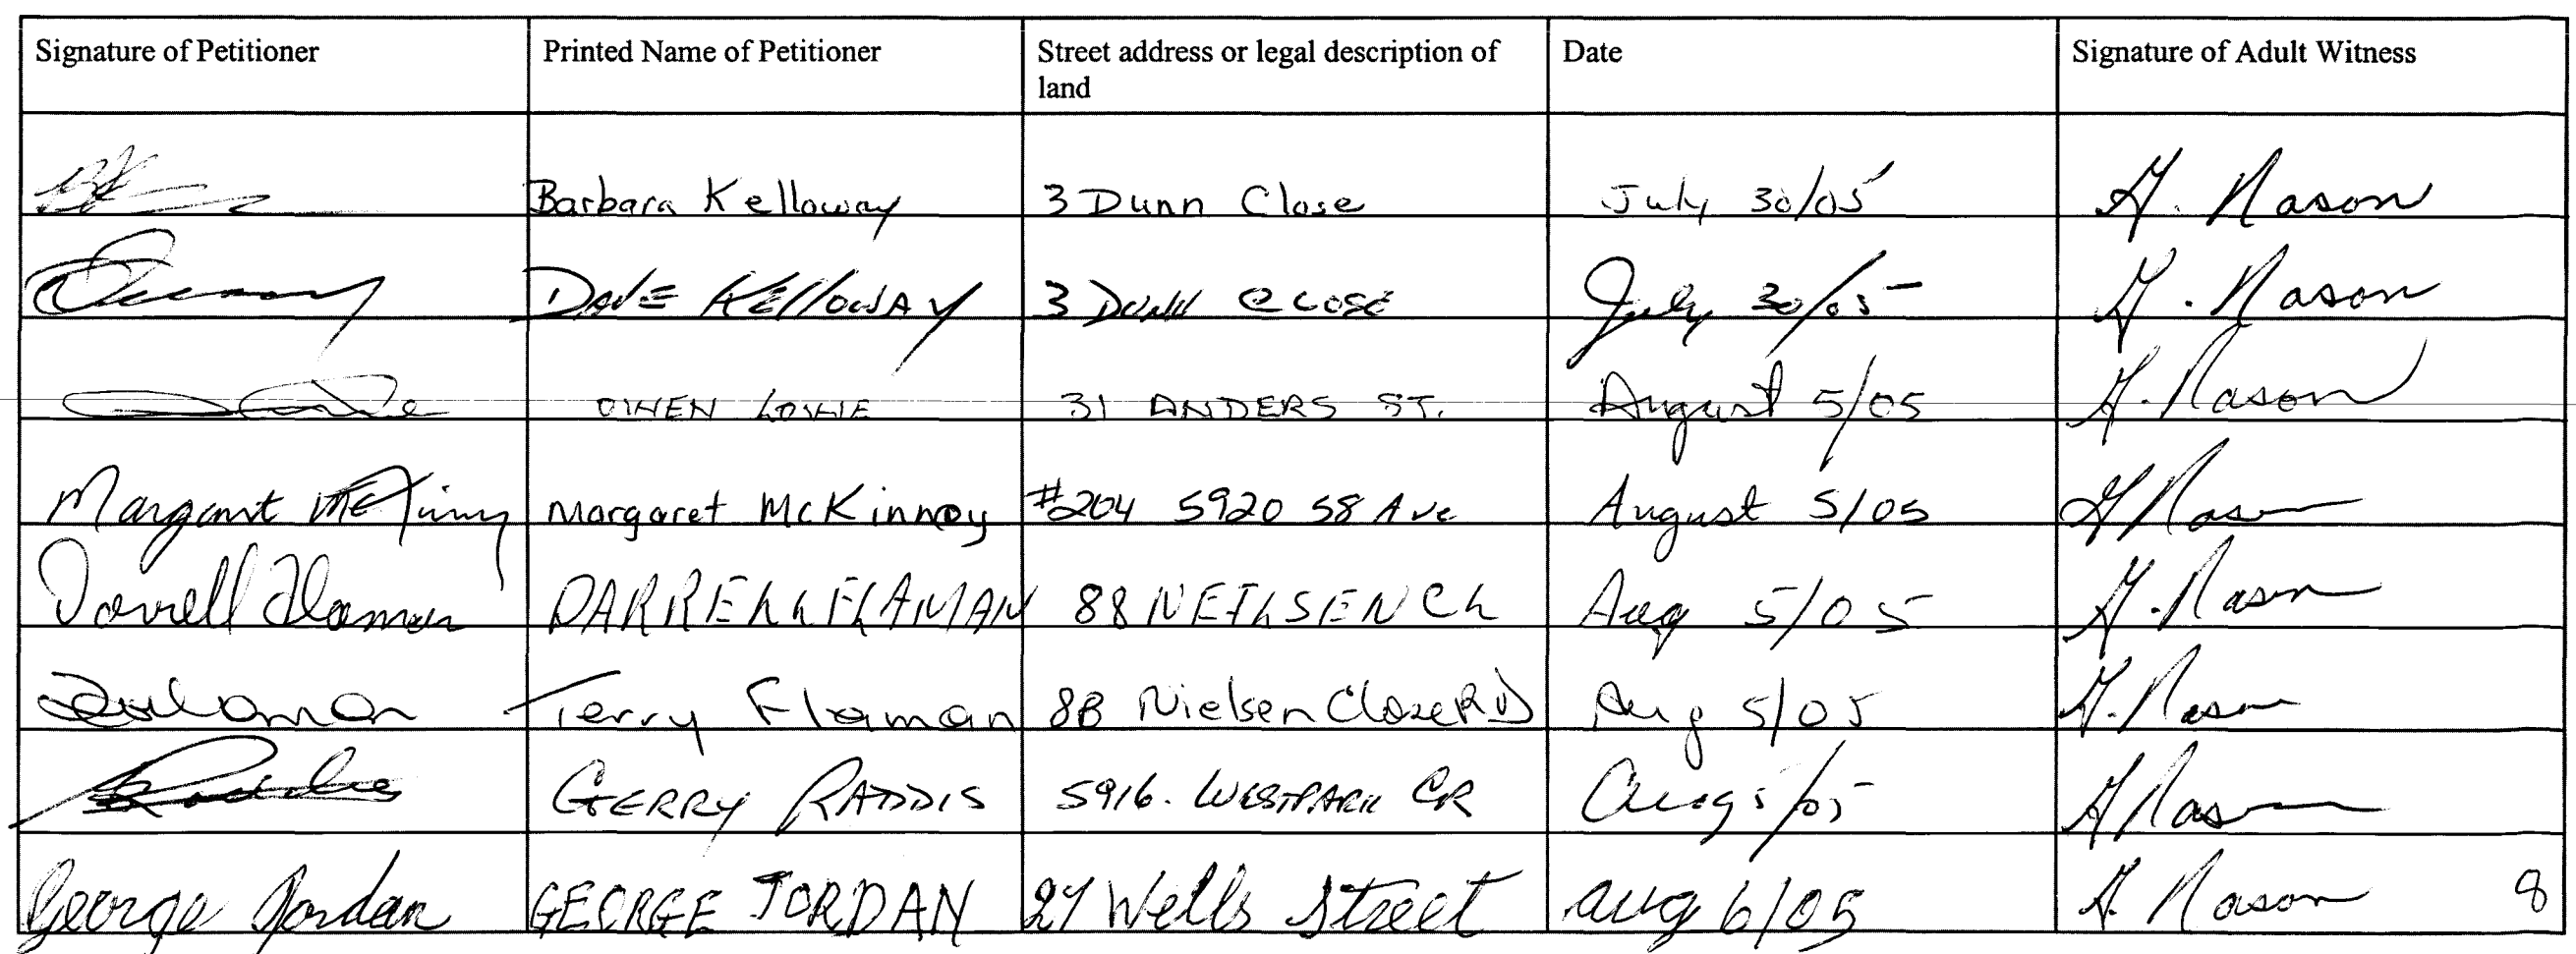 Signature of Petitioner Printed Name of Petitioner Street address or legal description of land Date Signature of Adult Witness
Barbara Kelloway 3 Dunn Close July 30/05 G. Nason
DAVE KELLOWAY 3 DUNN CLOSE July 30/05 G. Nason
OWEN LOWIE 31 ANDERS ST. August 5/05 G. Nason
Margaret McKinney Margaret McKinney #204 5920 58 Ave August 5/05 G Nason
Darrell Flaman DARRELL FLAMAN 88 NEILSEN CL Aug 5/05 G. Nason
Terry Flaman 88 Nielsen Close RD Aug 5/05 G. Nason
GERRY RADDIS 5916. WESTPARK CR Aug 5/05 G Nason
George Jordan GEORGE JORDAN 27 Wells Street aug 6/05 G. Nason 8